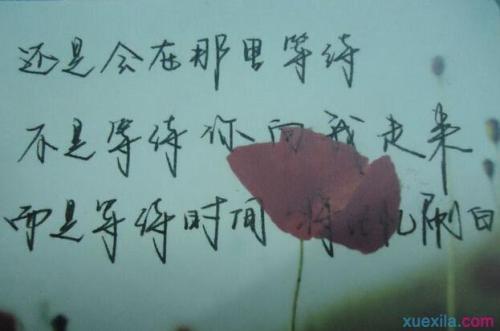 还是会在那里等待
不是等待你向我走来
而是等待时间 将记忆刷白
xuexila.com